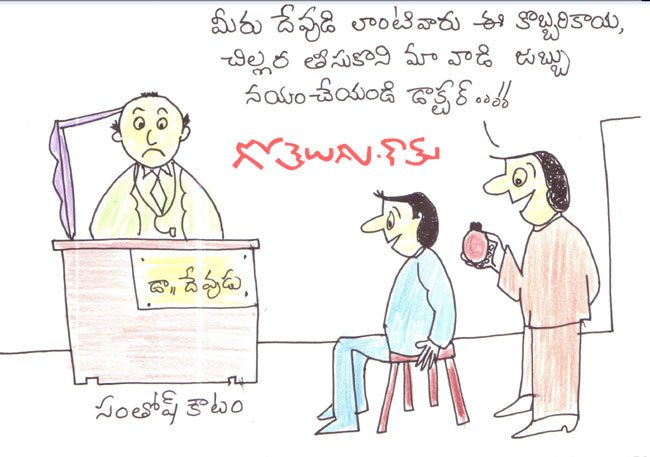 మీరు దేవుడి లాంటివారు ఈ కొబ్బరికాయ,
చిల్లర తీసుకొని మా వాడి జబ్బు
నయంచేయండి డాక్టర్....
గోతెలుగు.కామ్
డా॥ దేవుడు
సంతోష్ కౌటం